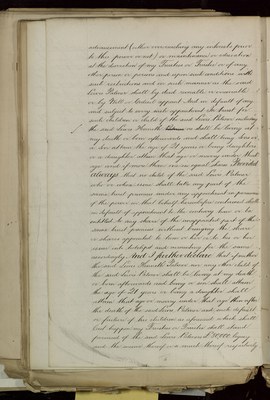 advancement (either overreaching any interests prior
to this power or not) or maintenance or otherwise
at the discretion of any Trustees or Trustee or of any
other person or persons and upon such conditions with
such restrictions and in such manner as the said
Eliza Palmer shall by deed revocable or irrevocable
or by Will or Codicil appoint And in default of any
and subject to every such appointment In trust for
such children or child of the said Eliza Palmer
the said Eliza shall be living at
my death or born afterwards and shall being a son
or sons attain the age of 21 years or being daughters
or a daughter attain that age or marry under that
age and if more than one in equal shares Provided
always that no child of the said Eliza Palmer
who or whose issue shall take any part of the
same trust premises under any appointment in pursuance
of the power in that behalf hereinbefore contained shall
in default of appointment to the contrary have or be
entitled to any share of the unappointed part of the
same trust premises without bringing the share
or shares appointed to him or her or to his or her
issue into hotchpot and accounting for the same
accordingly And I further declare that if neither
the said Eliza Palmer nor any other child of
the said Eliza Palmer shall be living at my death
or born afterwards and being a son shall attain
the age of 21 years or being a daughter shall
attain that age or marry under that age then after
the death of the said Eliza Palmer and such default
or failure of her children as aforesaid which shall
last happen my Trustees or Trustee shall stand
possessed of the said Eliza Palmer's legacy
and the income thereof